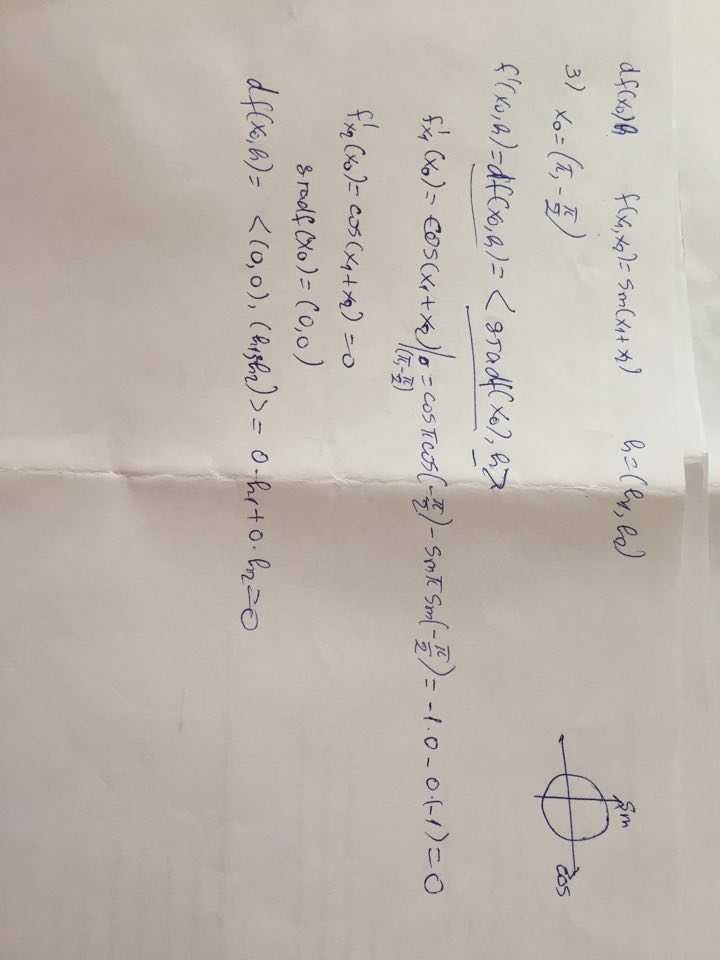 df(x₀)h f(x₁,x₂)=sin(x₁+x₂) h=(h₁,h₂)
sin
cos
3) x₀=(π,-π/2)
f'(x₀,h)=df(x₀,h)=<gradf(x₀),h>
f'x₁(x₀)=cos(x₁+x₂)|(π,-π/2)=cosπcos(-π/2)-sinπsin(-π/2)=-1·0-0·(-1)=0
f'x₂(x₀)=cos(x₁+x₂)=0
gradf(x₀)=(0,0)
df(x₀,h)=<(0,0),(h₁,h₂)>=0·h₁+0·h₂=0